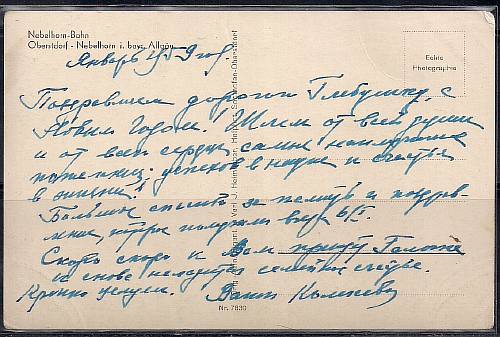 Nebelhorn-Bahn
Oberstdorf - Nebelhorn i. bayr. Allgäu
Echte
Photographie
Январь 1959 год.
Поздравляем дорогой Глебушка, с
Новым Годом! Шлем от всей души
и от всего сердца самые наилучшие
пожелания: успехов в науке и счастья
в жизни!
Большое спасибо за память и поздрав-
ление, которое получили вчера 6/I.
Скоро скоро и Вам придут
и снова семейное счастье.
Крепко целуем. Ваши
Nr. 7830